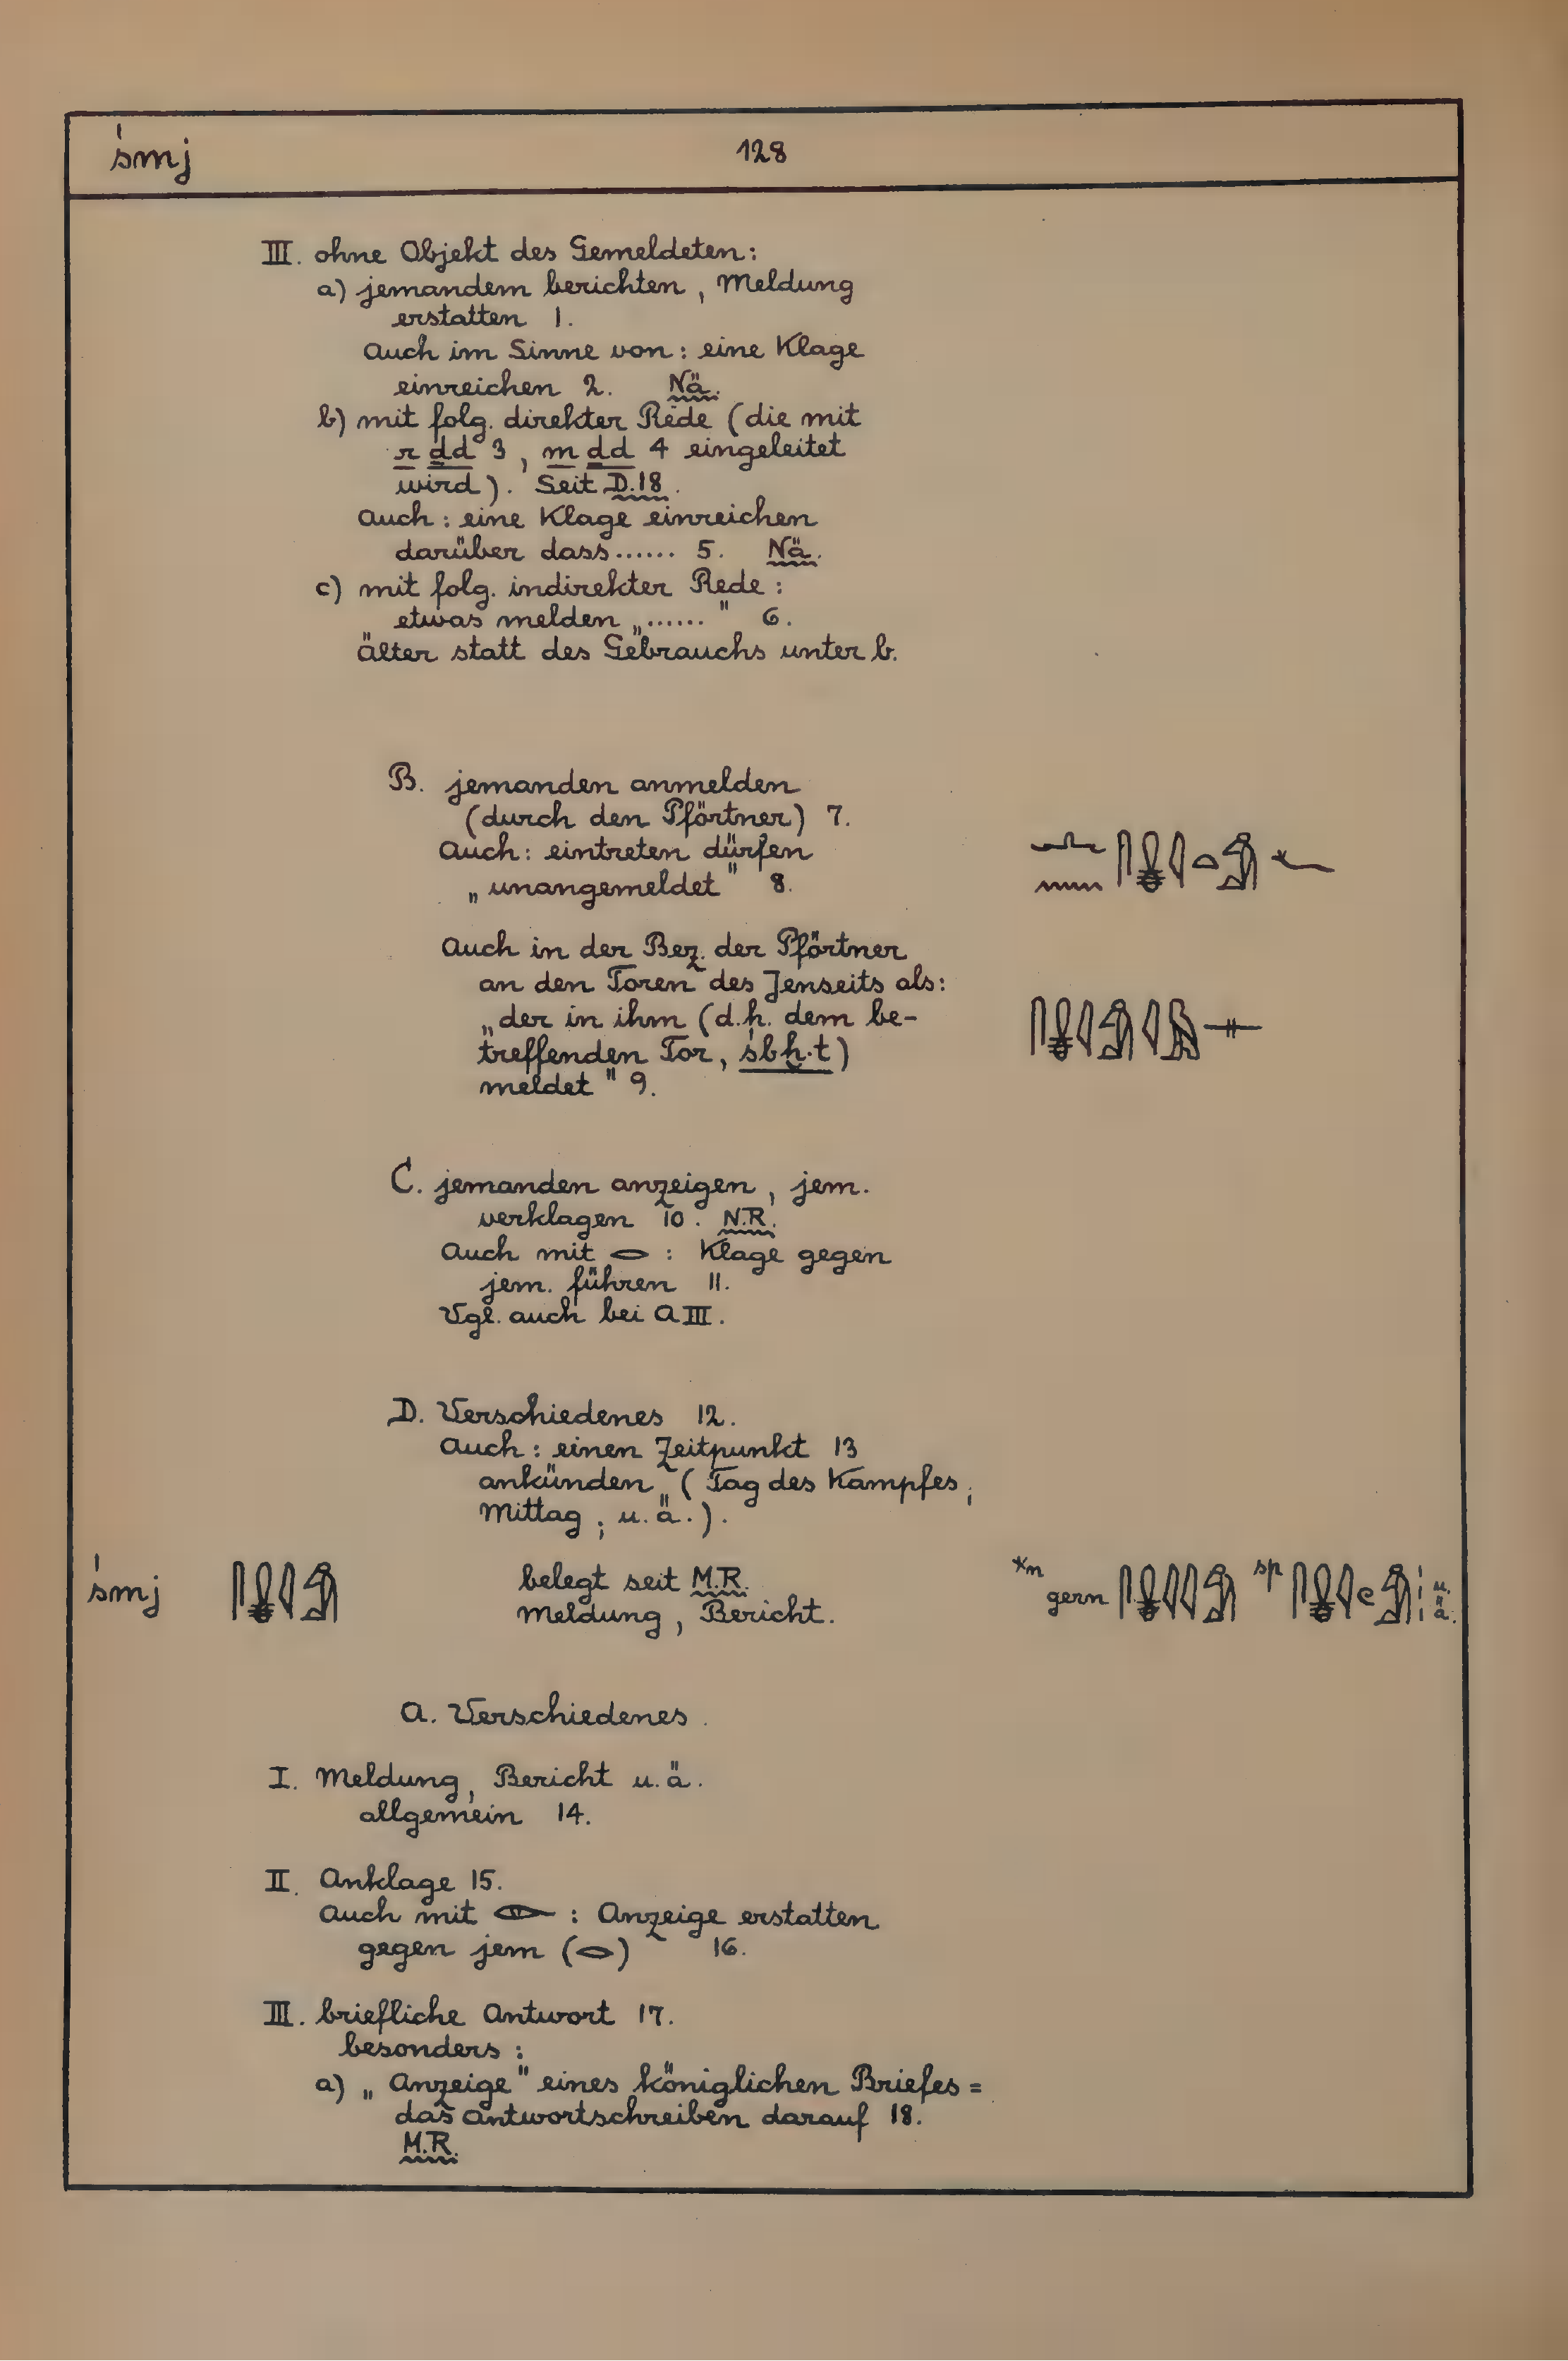 śmj 128
III. ohne Objekt des Gemeldeten:
a) jemandem berichten, Meldung
erstatten 1.
Auch im Sinne von: eine Klage
einreichen 2. Nä.
b) mit folg. direkter Rede (die mit
r ḏd 3, m ḏd 4 eingeleitet
wird). Seit D.18.
Auch: eine Klage einreichen
darüber dass...... 5. Nä.
c) mit folg. indirekter Rede:
etwas melden „......" 6.
älter statt des Gebrauchs unter b.
B. jemanden anmelden
(durch den Pförtner) 7.
Auch: eintreten dürfen
„unangemeldet" 8.
Auch in der Bez. der Pförtner
an den Toren des Jenseits als:
„der in ihm (d.h. dem be-
treffenden Tor, śbḫ.t)
meldet" 9.
C. jemanden anzeigen, jem.
verklagen 10. N.R.
Auch mit 𓂋 : Klage gegen
jem. führen 11.
Vgl. auch bei A III.
D. Verschiedenes 12.
Auch: einen Zeitpunkt 13
ankünden (Tag des Kampfes;
Mittag; u.ä.).
śmj belegt seit M.R. *n gern sp u.ä.
Meldung, Bericht.
A. Verschiedenes.
I. Meldung, Bericht u.ä.
allgemein 14.
II. Anklage 15.
Auch mit 𓁹 : Anzeige erstatten
gegen jem (𓂋) 16.
III. briefliche Antwort 17.
besonders:
a) „Anzeige" eines königlichen Briefes =
das Antwortschreiben darauf 18.
M.R.